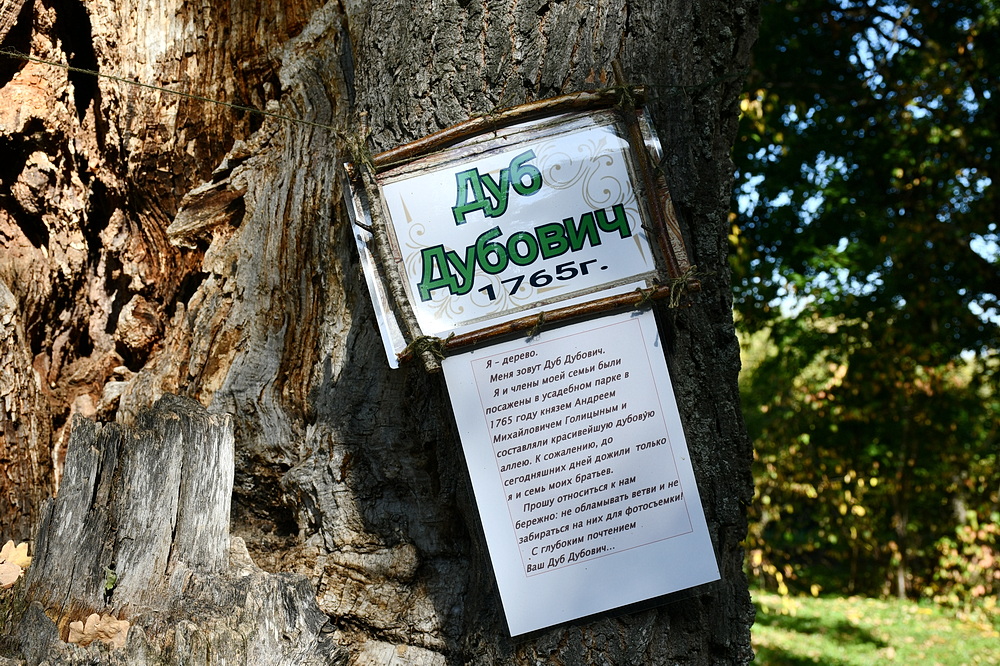 Дуб
Дубович
1765г.
Я - дерево.
Меня зовут Дуб Дубович.
Я и члены моей семьи были
посажены в усадебном парке в
1765 году князем Андреем
Михайловичем Голицыным и
составляли красивейшую дубовую
аллею. К сожалению, до
сегодняшних дней дожили только
я и семь моих братьев.
Прошу относиться к нам
бережно: не обламывать ветви и не
забираться на них для фотосъемки!
С глубоким почтением
Ваш Дуб Дубович...